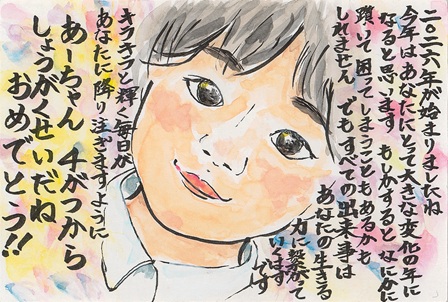 二〇二六年が始まりましたね
今年はあなたにとって大きな変化の年に
なると思います もしかするとなにかに
躓いて困ってしまうこともあるかも
しれません でもすべての出来事は
あなたの生きる
力に繋がって
いくはず
です
キラキラと輝く毎日が
あなたに降り注がますように
あーちゃん 4がつから
しょうがくせいだね
おめでとう!!